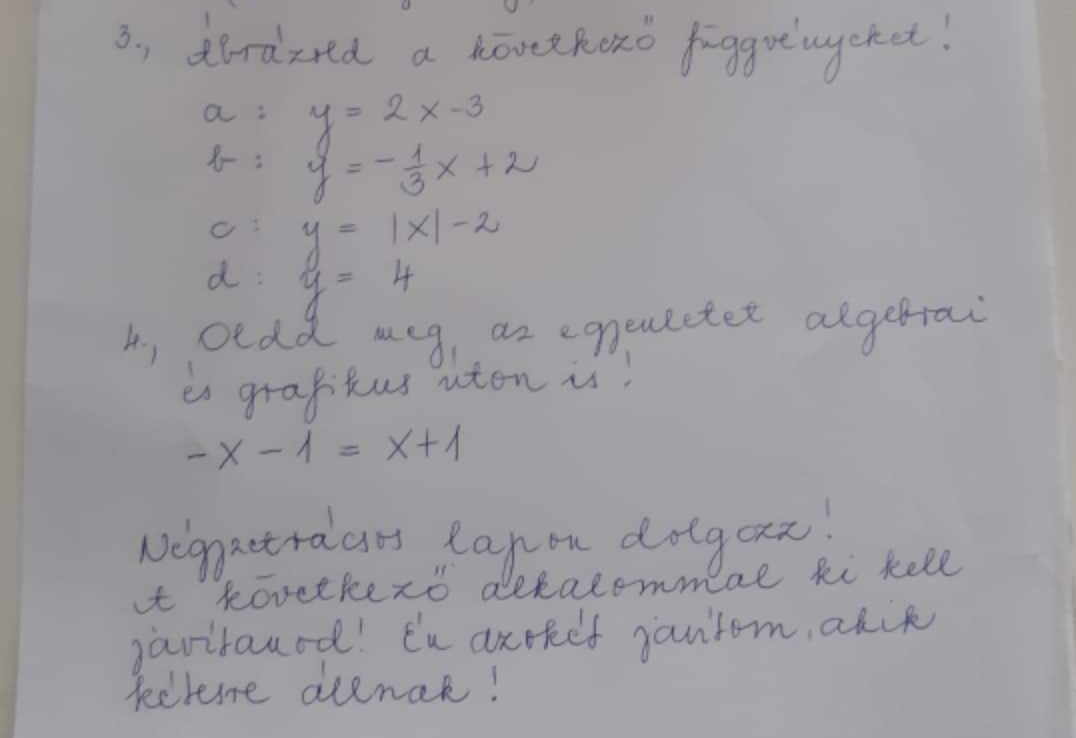 3., Ábrázold a következő függvényeket!
a: y = 2x-3
b: y = -1/3 x + 2
c: y = |x|-2
d: y = 4
4., Oldd meg az egyenletet algebrai
és grafikus úton is!
-x-1 = x+1
Négyzetrácsos lapon dolgozz!
A következő alkalommal ki kell
javítanod! Én azokét javítom, akik
kétesre állnak!